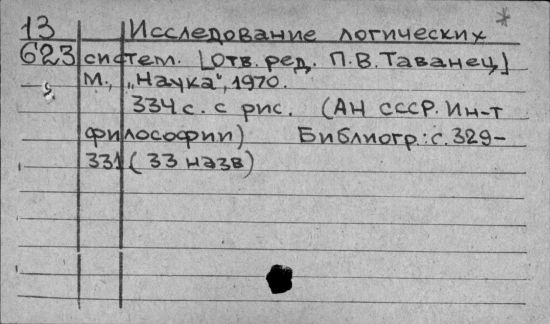 13 Исследование логических *
623 систем. [Отв. ред. П.В. Таванец]
М., „Наука", 1970.
334 с. с рис. (АН СССР. Ин-т
философии) Библиогр.: с. 329-
331 (33 назв)